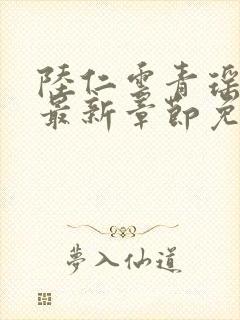 陸仁雲青瑶
最新章節免
夢入仙道